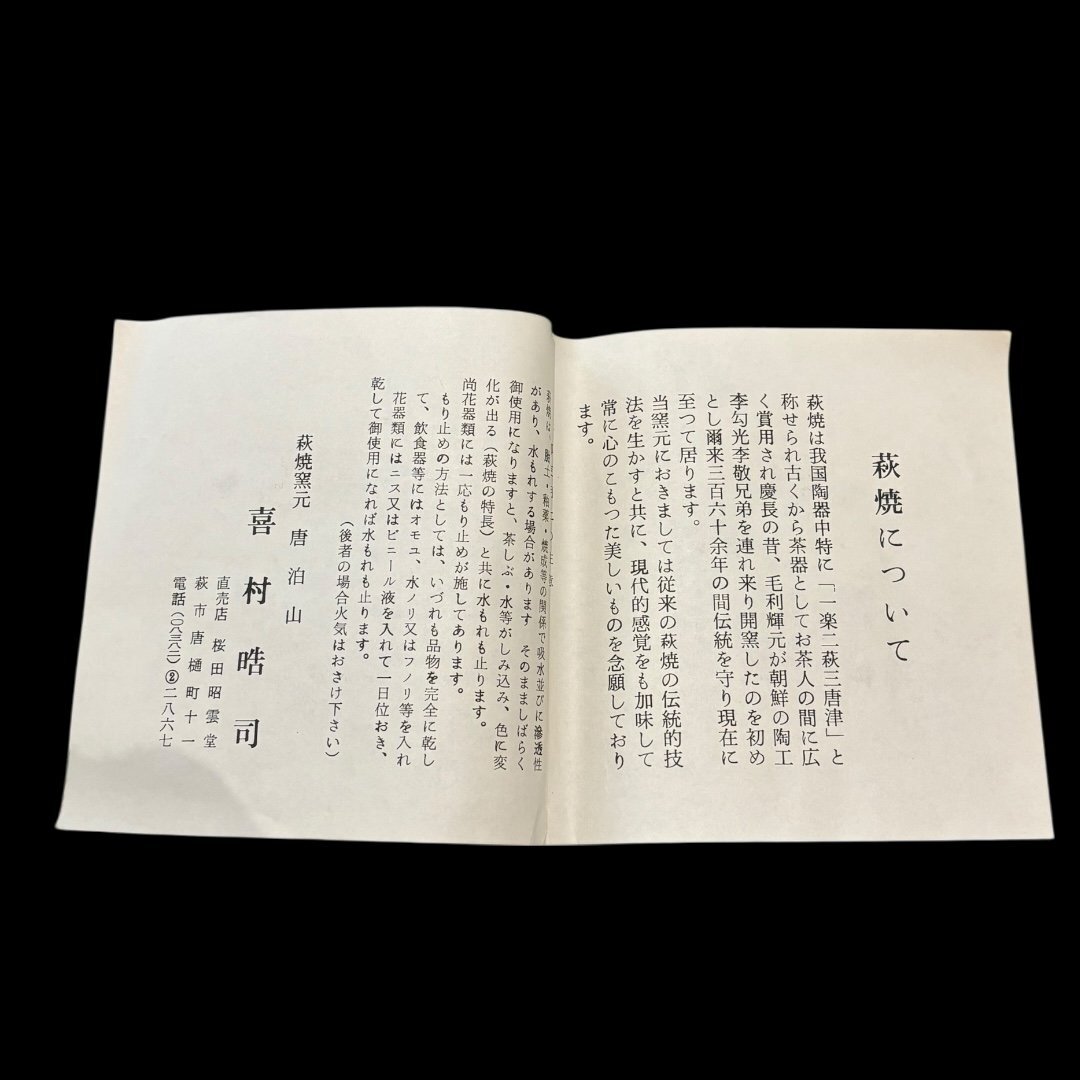 萩焼について
萩焼は我国陶器中特に「一楽二萩三唐津」と
称せられ古くから茶器としてお茶人の間に広
く賞用され慶長の昔、毛利輝元が朝鮮の陶工
李勾光李敬兄弟を連れ来り開窯したのを初め
とし爾来三百六十余年の間伝統を守り現在に
至つて居ります。
当窯元におきましては従来の萩焼の伝統的技
法を生かすと共に、現代的感覚をも加味して
常に心のこもつた美しいものを念願しており
ます。
萩焼は、陶土・釉薬・焼成等の関係で吸水並びに滲透性
があり、水もれする場合があります そのまましばらく
御使用になりますと、茶しぶ・水等がしみ込み、色に変
化が出る（萩焼の特長）と共に水もれも止ります。
尚花器類には一応もり止めが施してあります。
もり止めの方法としては、いづれも品物を完全に乾し
て、飲食器等にはオモユ、水ノリ又はフノリ等を入れ
花器類にはニス又はビニール液を入れて一日位おき、
乾して御使用になれば水もれも止ります。
（後者の場合火気はおさけ下さい）
萩焼窯元 唐泊山
喜村晧司
直売店 桜田昭雲堂
萩市唐樋町十一
電話（〇八三八二）②二八六七